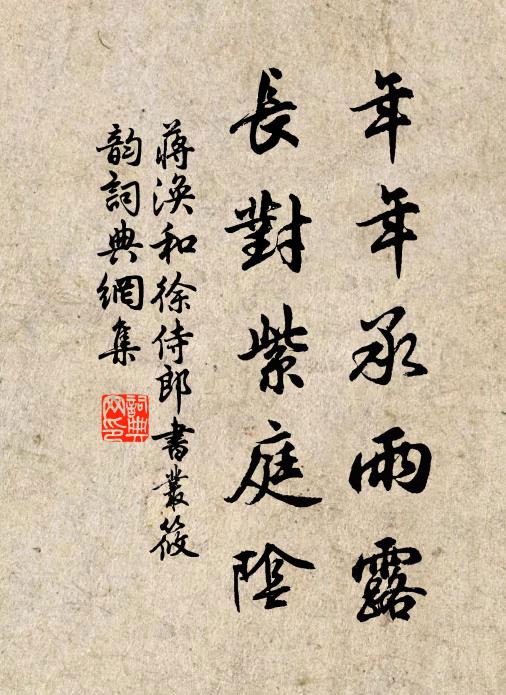 年年承雨露
長對紫庭陰
蔣渙和徐侍郎書叢筱
韵詞典網集
詞典網印